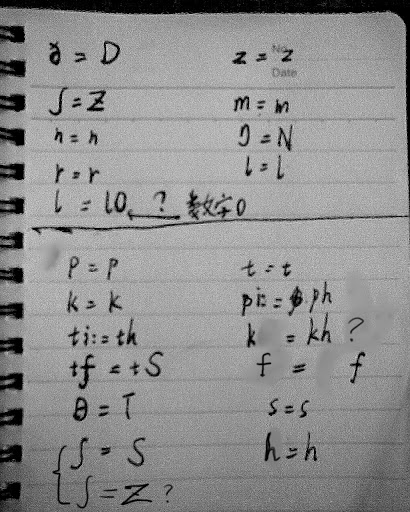 ð = D z = z
No.
Date
ʃ = Z m = m
n = n ŋ = N
r = r l = l
l = l0 ← ? 数字0
p = p t = t
k = k pː = ph
tː = th k = kh ?
tf = tS f = f
θ = T s = s
ʃ = S h = h
ʃ = Z ?